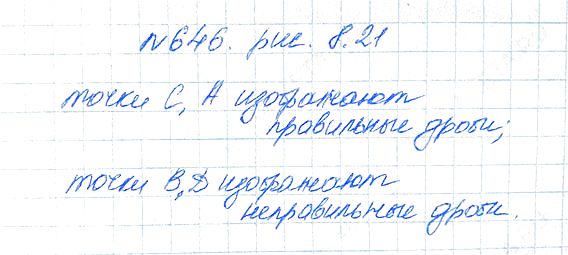 №646. рис. 8.21
точки C, A изображают
правильные дроби;
точки B, D изображают
неправильные дроби.